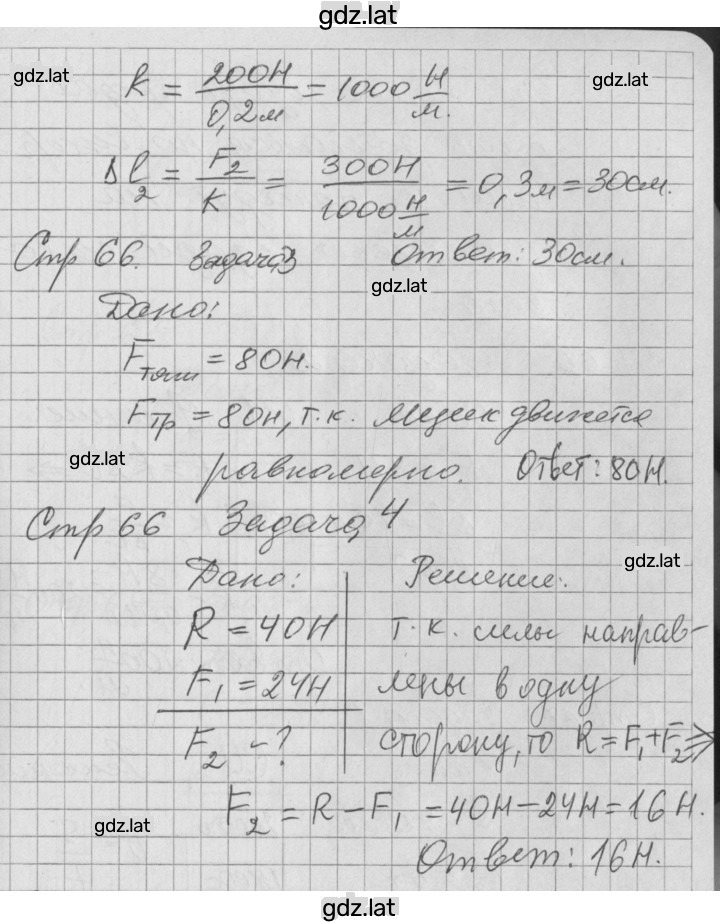 gdz.lat
gdz.lat
gdz.lat
k = 200Н / 0,2м = 1000 Н/м.
Δl₂ = F₂/K = 300Н / 1000 Н/м = 0,3м = 30см.
Стр 66. Задача 3 Ответ: 30см.
gdz.lat
Дано:
Fтяги = 80Н.
Fтр = 80н, т.к. ящик движется
gdz.lat
равномерно. Ответ: 80Н.
Стр 66 Задача 4
gdz.lat
Дано: Решение:
R = 40Н т.к. силы направ-
F₁ = 24Н лены в одну
F₂ - ? сторону, то R = F₁ + F₂ ⇒
F₂ = R - F₁ = 40Н - 24Н = 16 Н.
gdz.lat
Ответ: 16Н.
gdz.lat